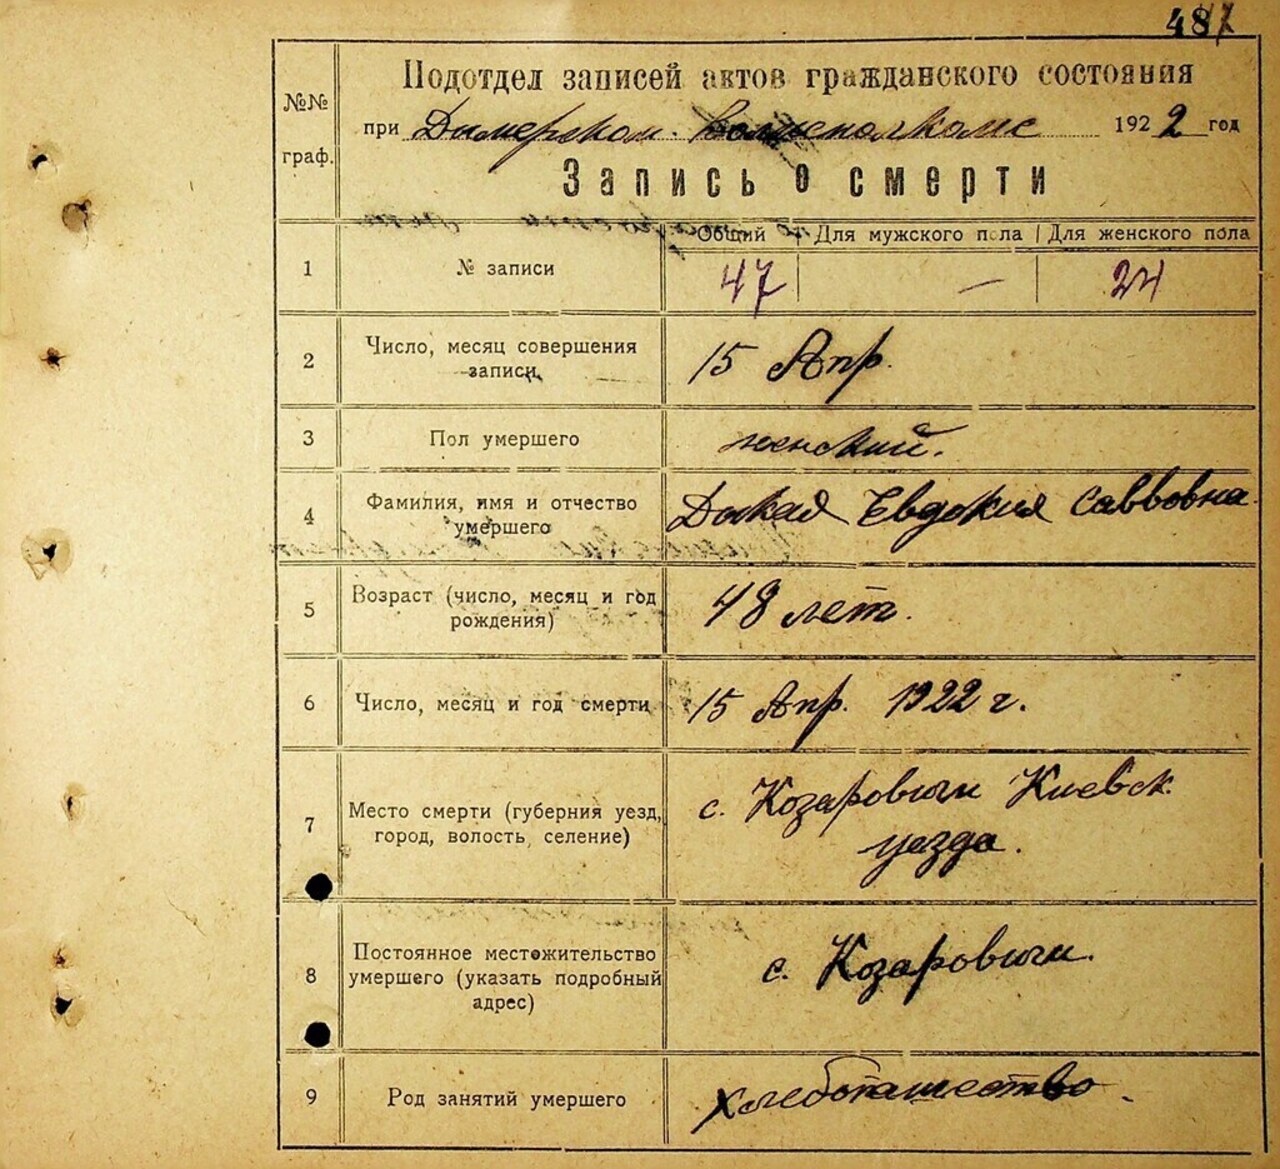 487
№№ граф.
Подотдел записей актов гражданского состояния
при Дымерском волисполкоме 1922 год
Запись о смерти
Общий | Для мужского пола | Для женского пола
1 № записи 47 — 24
2 Число, месяц совершения записи 15 Апр.
3 Пол умершего женский.
4 Фамилия, имя и отчество умершего Дикая Евдокия Саввовна
5 Возраст (число, месяц и год рождения) 48 лет.
6 Число, месяц и год смерти 15 Апр. 1922 г.
7 Место смерти (губерния уезд, город, волость, селение) с. Козаровичи Киевск. уезда.
8 Постоянное местожительство умершего (указать подробный адрес) с. Козаровичи.
9 Род занятий умершего хлебопашество.